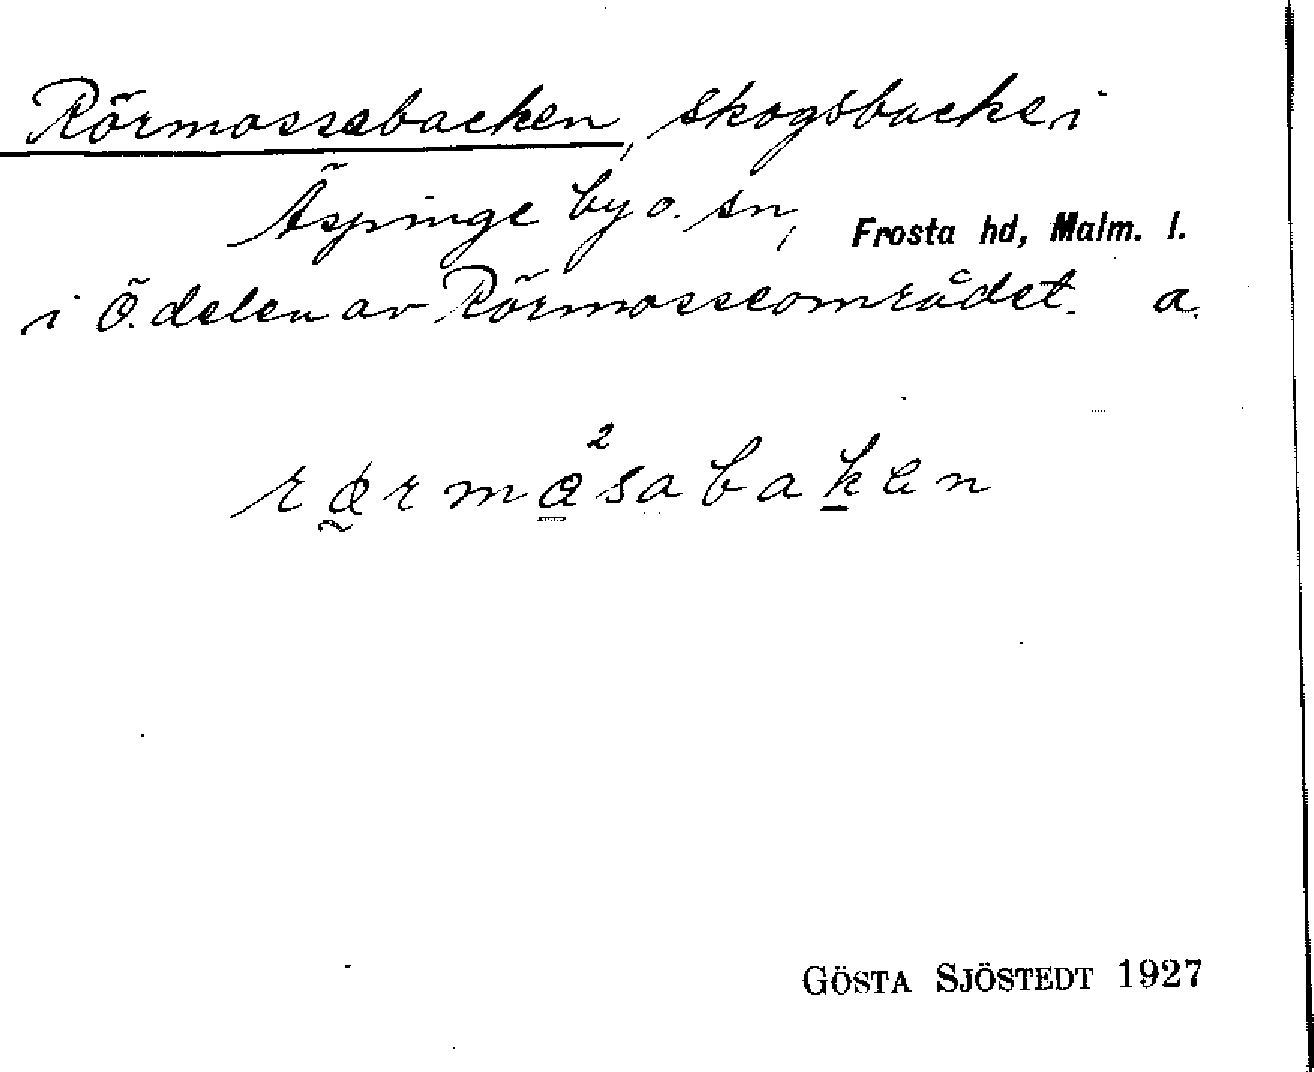 Rörmossebacken, skogsbacke i
Äspinge by o. sn, Frosta hd, Malm. l.
i Ö. delen av Rörmosseområdet. a.
GÖSTA SJÖSTEDT 1927